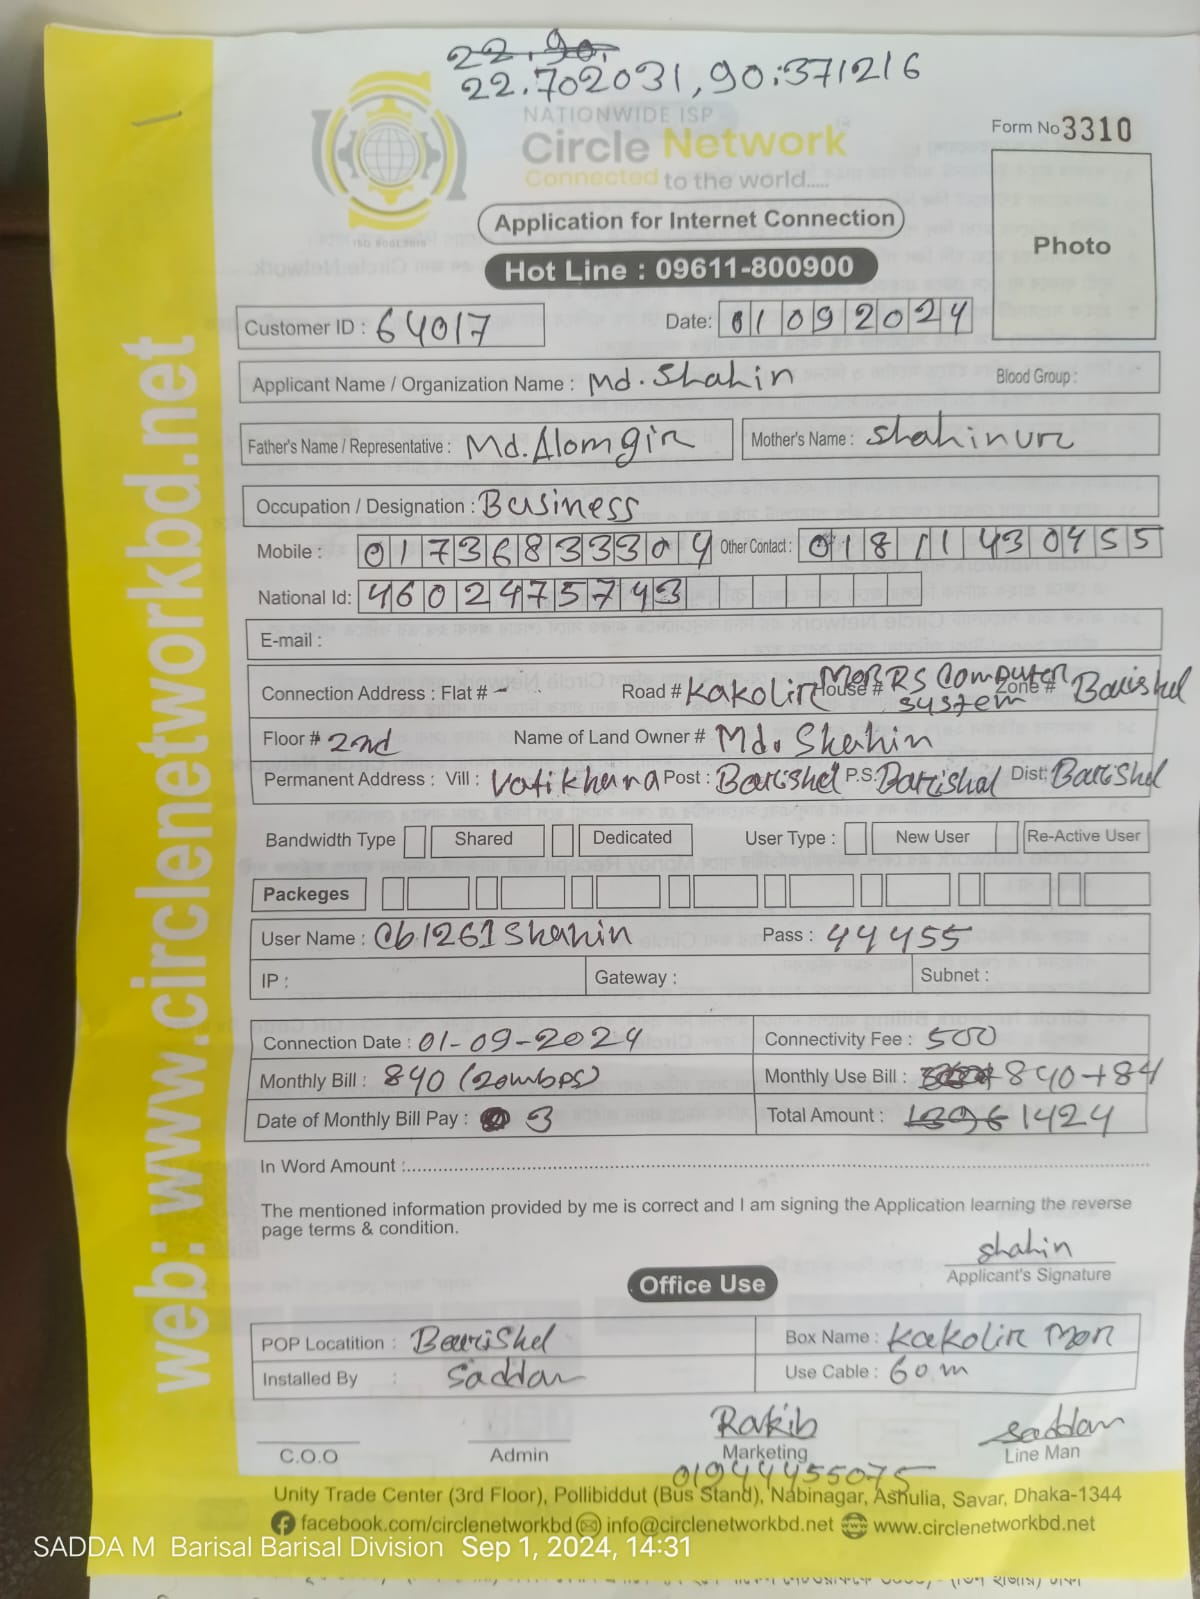 22.90.
22.702031, 90.371216
NATIONWIDE ISP
Circle Network
Connected to the world.....
ISO 9001:2015
Form No 3310
Application for Internet Connection
Photo
Hot Line : 09611-800900
Customer ID : 64017
Date: 01092024
Applicant Name / Organization Name : Md. Shahin Blood Group :
Father's Name / Representative : Md. Alomgir Mother's Name : Shahinur
Occupation / Designation : Business
Mobile : 01736833304 Other Contact : 01811430455
National Id: 4602475743
E-mail :
Connection Address : Flat # - Road # Kakolir House # RS Computer System Zone # Barishal
Floor # 2nd Name of Land Owner # Md. Shahin
Permanent Address : Vill : Vatikhana Post : Barishal P.S: Barishal Dist: Barishal
Bandwidth Type Shared Dedicated User Type : New User Re-Active User
Packeges
User Name : Cb1261Shahin Pass : 44455
IP : Gateway : Subnet :
Connection Date : 01-09-2024 Connectivity Fee : 500
Monthly Bill : 840 (20mbps) Monthly Use Bill : 840+84
Date of Monthly Bill Pay : 3 Total Amount : 1424
In Word Amount :
The mentioned information provided by me is correct and I am signing the Application learning the reverse
page terms & condition.
Shahin
Applicant's Signature
Office Use
POP Locatition : Barishal Box Name : Kakolir Mor
Installed By : Saddam Use Cable : 60m
Rakib Saddam
C.O.O Admin Marketing Line Man
01944455075
Unity Trade Center (3rd Floor), Pollibiddut (Bus Stand), Nabinagar, Ashulia, Savar, Dhaka-1344
facebook.com/circlenetworkbd info@circlenetworkbd.net www.circlenetworkbd.net
web: www.circlenetworkbd.net
SADDA M Barisal Barisal Division Sep 1, 2024, 14:31